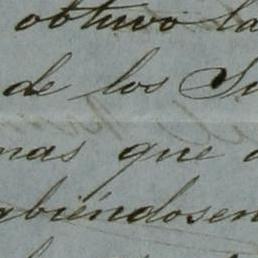 obtuvo la
de los Su
mas que
abiéndosen